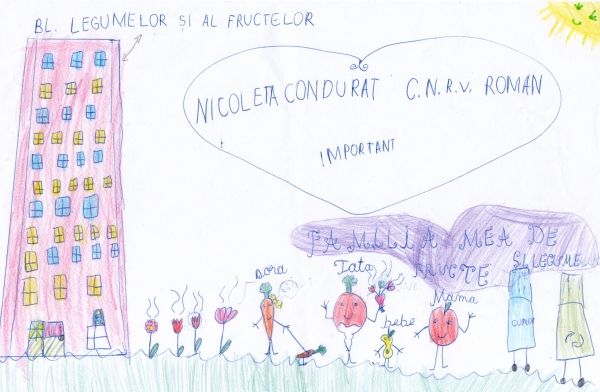 BL. LEGUMELOR ȘI AL FRUCTELOR
NICOLETA CONDURAT C.N.R.V. ROMAN
IMPORTANT
FAMILIA MEA DE
FRUCTE ȘI LEGUME
Dora
Tata
Mama
bebe
GUNOI